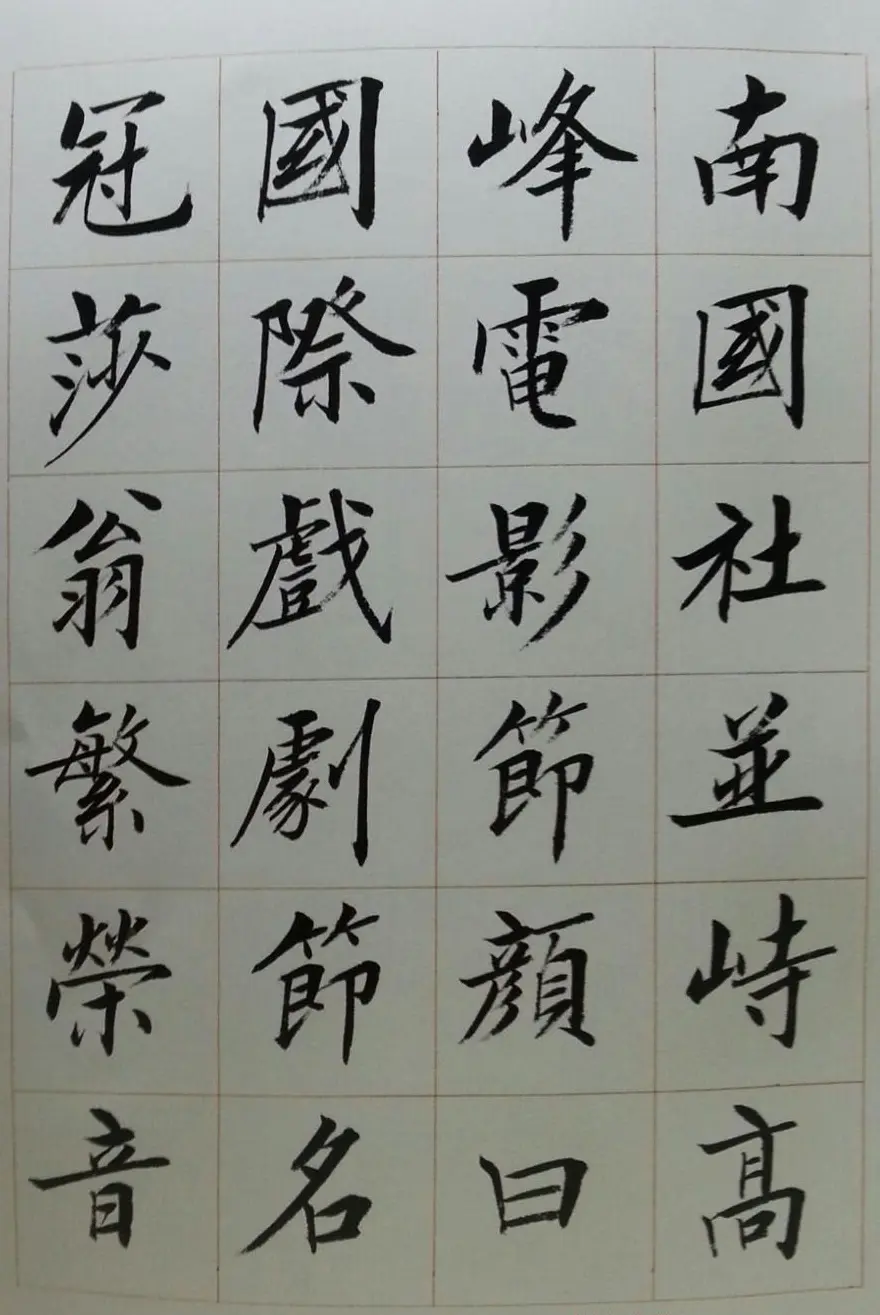 南國社並峙高
峰電影節顏曰
國際戲劇節名
冠莎翁繁榮音